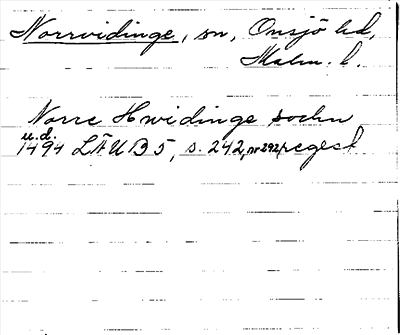 Norrvidinge, sn, Onsjö hd,
Malm. l.
Norre Hwidinge sochn
u.d.
1494 LÄUB 5, s. 242, nr 292, regest